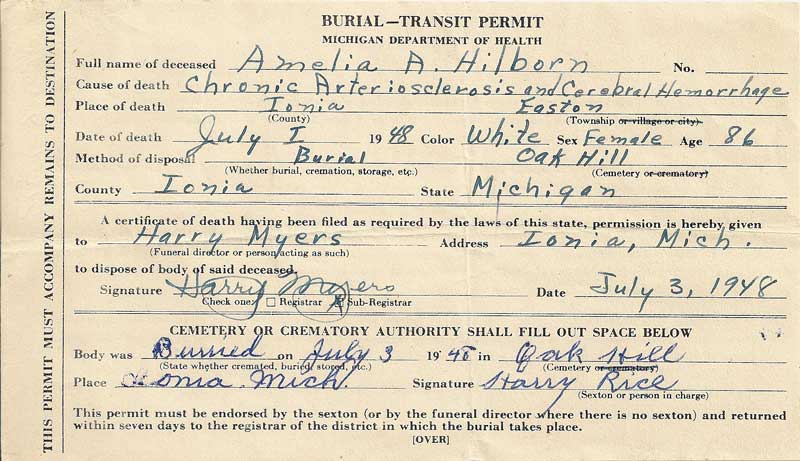 BURIAL—TRANSIT PERMIT
MICHIGAN DEPARTMENT OF HEALTH
Full name of deceased Amelia A. Hilborn No.
Cause of death Chronic Arteriosclerosis and Cerebral Hemorrhage
Place of death Ionia Easton
(County) (Township or village or city)
Date of death July 1 1948 Color White Sex Female Age 86
Method of disposal Burial Oak Hill
(Whether burial, cremation, storage, etc.) (Cemetery or crematory)
County Ionia State Michigan
A certificate of death having been filed as required by the laws of this state, permission is hereby given
to Harry Myers Address Ionia, Mich.
(Funeral director or person acting as such)
to dispose of body of said deceased.
Signature Harry Myers Date July 3, 1948
Check one: Registrar X Sub-Registrar
CEMETERY OR CREMATORY AUTHORITY SHALL FILL OUT SPACE BELOW
Body was Burried on July 3 1948 in Oak Hill
(State whether cremated, buried, stored, etc.) (Cemetery or crematory)
Place Ionia Mich. Signature Harry Rice
(Sexton or person in charge)
This permit must be endorsed by the sexton (or by the funeral director where there is no sexton) and returned
within seven days to the registrar of the district in which the burial takes place.
[OVER]
THIS PERMIT MUST ACCOMPANY REMAINS TO DESTINATION